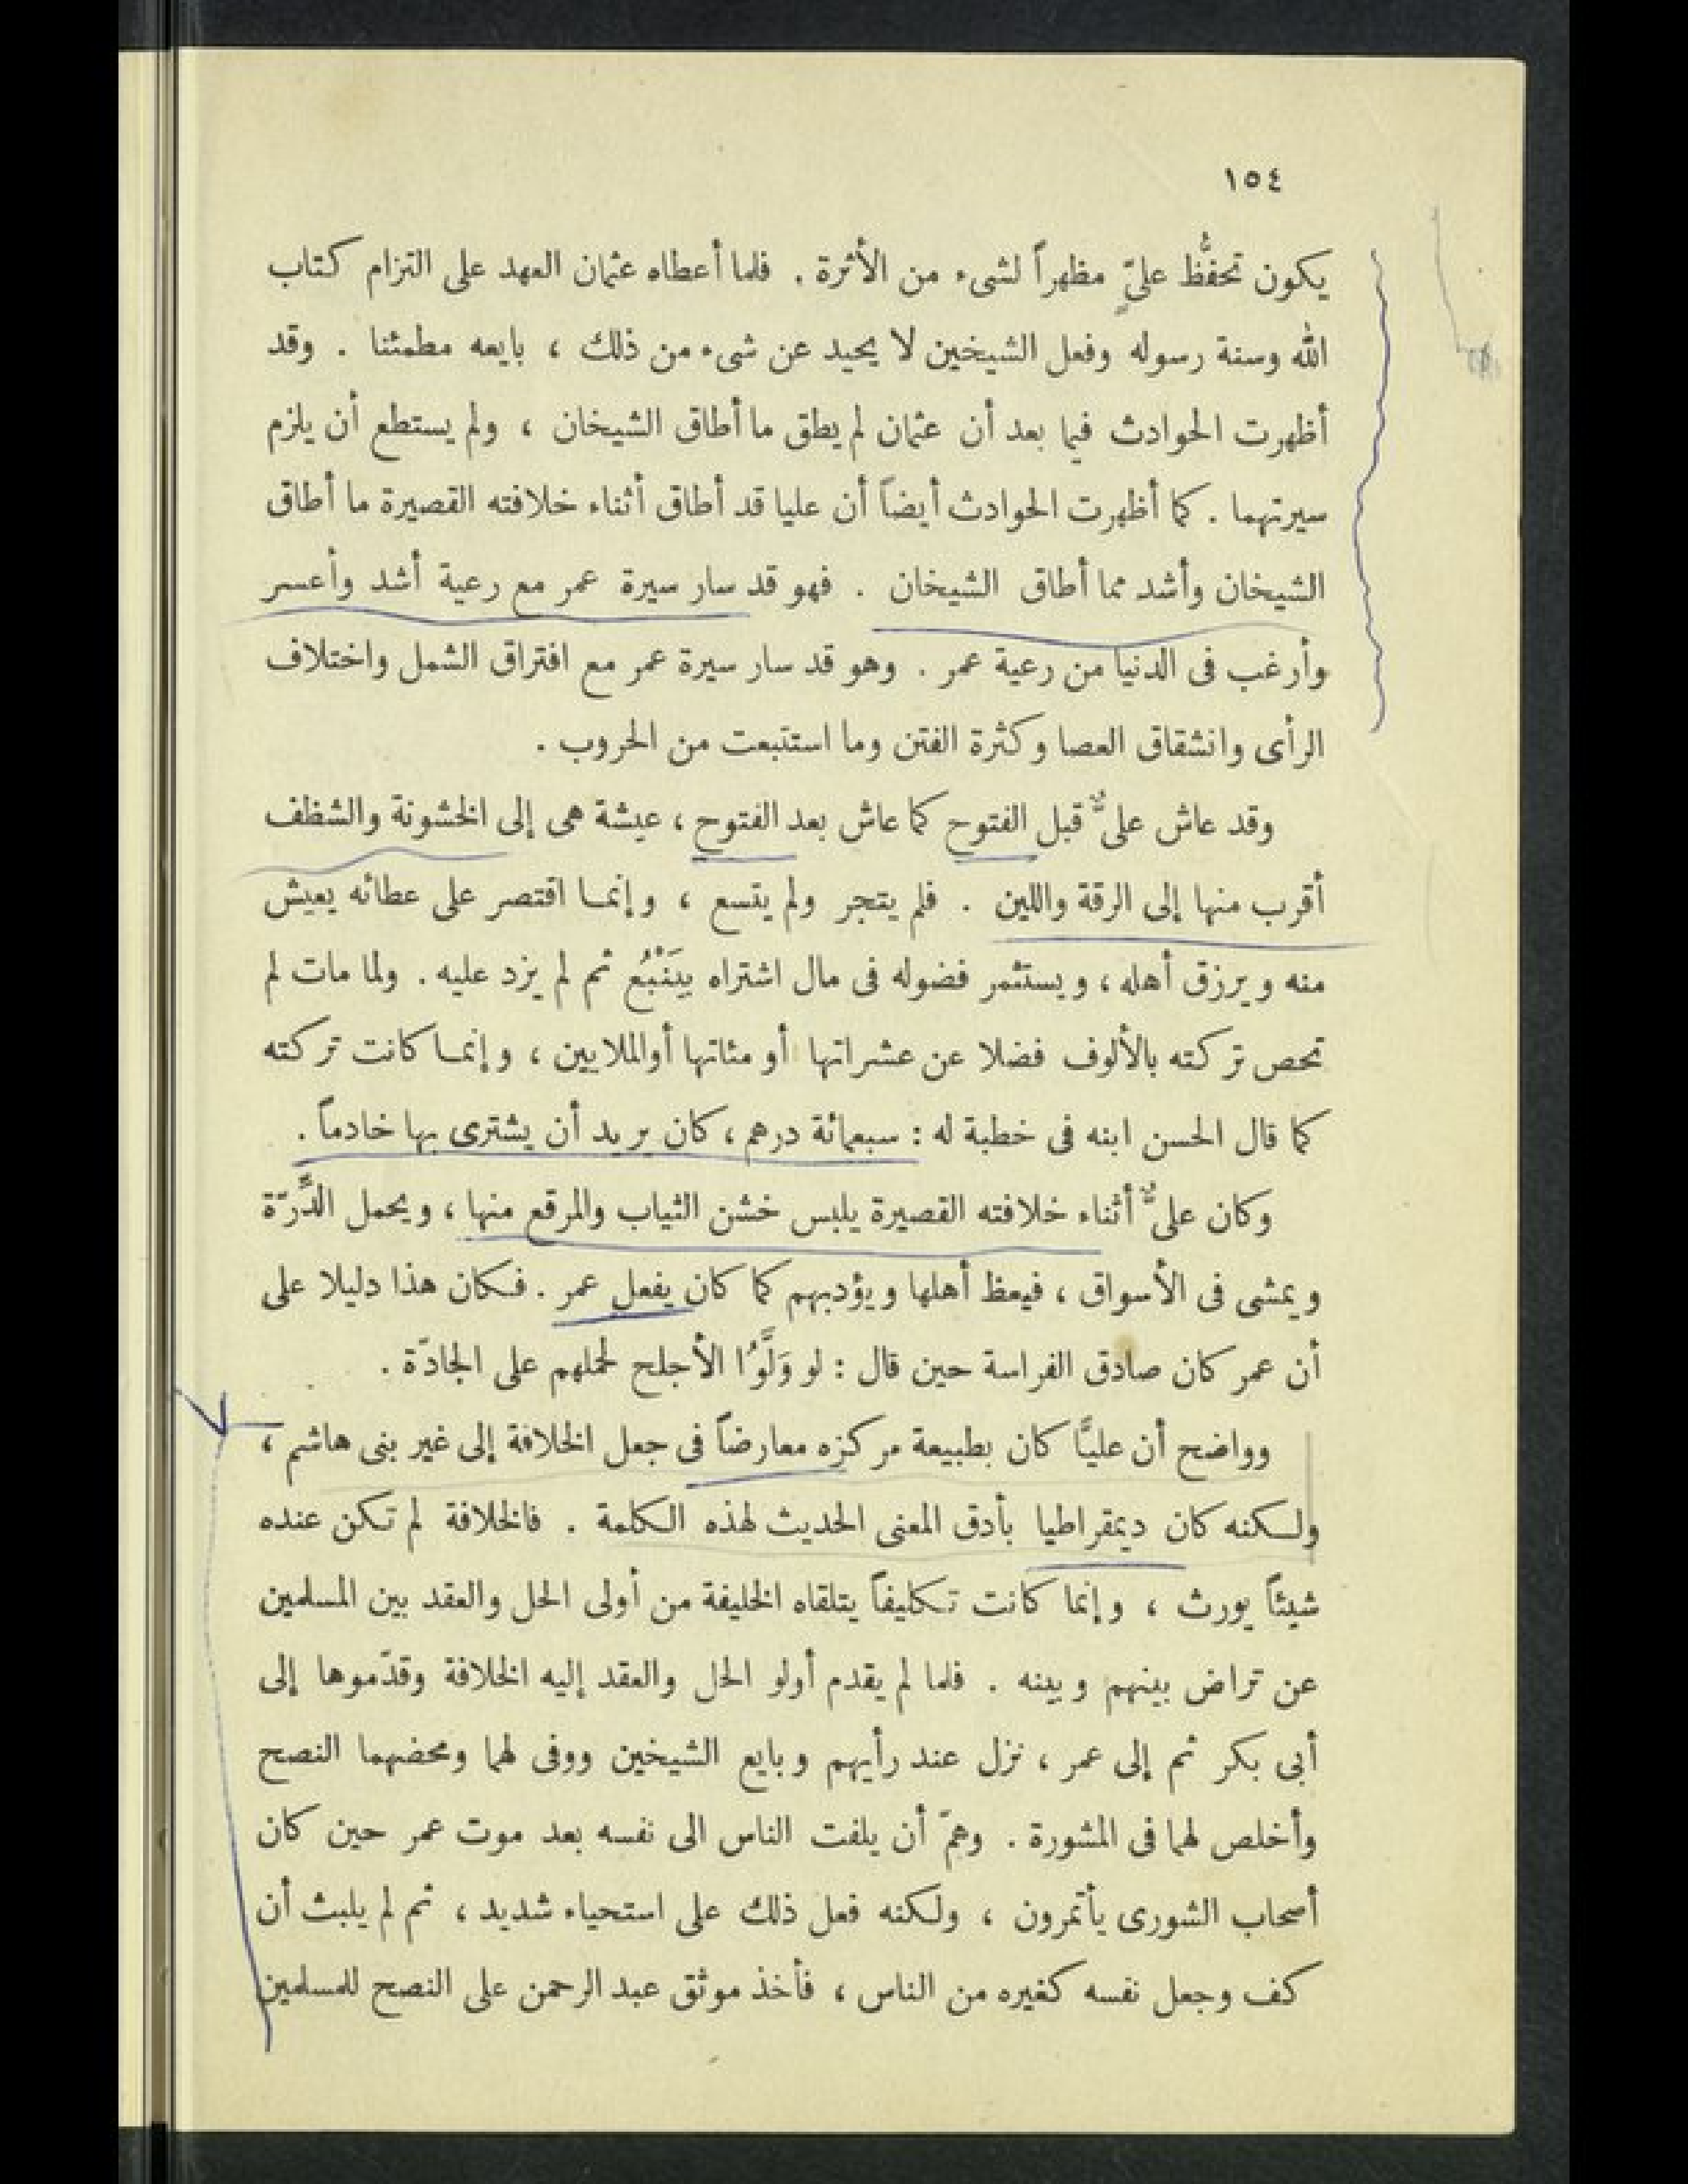 ١٥٤
يكون تحفُّظ عليّ مظهراً لشىء من الأثرة . فلما أعطاه عثمان العهد على التزام كتاب
الله وسنة رسوله وفعل الشيخين لا يحيد عن شىء من ذلك ، بايعه مطمئنا . وقد
أظهرت الحوادث فيما بعد أن عثمان لم يطق ما أطاق الشيخان ، ولم يستطع أن يلزم
سيرتهما . كما أظهرت الحوادث أيضاً أن عليا قد أطاق أثناء خلافته القصيرة ما أطاق
الشيخان وأشد مما أطاق الشيخان . فهو قد سار سيرة عمر مع رعية أشد وأعسر
وأرغب فى الدنيا من رعية عمر . وهو قد سار سيرة عمر مع افتراق الشمل واختلاف
الرأى وانشقاق العصا وكثرة الفتن وما استتبعت من الحروب .
وقد عاش علىٌّ قبل الفتوح كما عاش بعد الفتوح ، عيشة هى إلى الخشونة والشظف
أقرب منها إلى الرقة واللين . فلم يتجر ولم يتسع ، وإنما اقتصر على عطائه يعيش
منه ويرزق أهله ، ويستثمر فضوله فى مال اشتراه بيَنْبُع ثم لم يزد عليه . ولما مات لم
تحص تركته بالألوف فضلا عن عشراتها أو مئاتها أوالملايين ، وإنما كانت تركته
كما قال الحسن ابنه فى خطبة له : سبعمائة درهم ، كان يريد أن يشترى بها خادماً .
وكان علىٌّ أثناء خلافته القصيرة يلبس خشن الثياب والمرقع منها ، ويحمل الدِّرّة
ويمشى فى الأسواق ، فيعظ أهلها ويؤدبهم كما كان يفعل عمر . فكان هذا دليلا على
أن عمر كان صادق الفراسة حين قال : لو وَلَّوُا الأجلح لحملهم على الجادّة .
وواضح أن عليًّا كان بطبيعة مركزه معارضاً فى جعل الخلافة إلى غير بنى هاشم ،
ولكنه كان ديمقراطيا بأدق المعنى الحديث لهذه الكلمة . فالخلافة لم تكن عنده
شيئاً يورث ، وإنما كانت تكليفاً يتلقاه الخليفة من أولى الحل والعقد بين المسلمين
عن تراض بينهم وبينه . فلما لم يقدم أولو الحل والعقد إليه الخلافة وقدّموها إلى
أبى بكر ثم إلى عمر ، نزل عند رأيهم وبايع الشيخين ووفى لهما ومحضهما النصح
وأخلص لهما فى المشورة . وهمّ أن يلفت الناس الى نفسه بعد موت عمر حين كان
أصحاب الشورى يأتمرون ، ولكنه فعل ذلك على استحياء شديد ، ثم لم يلبث أن
كف وجعل نفسه كغيره من الناس ، فأخذ موثق عبد الرحمن على النصح للمسلمين